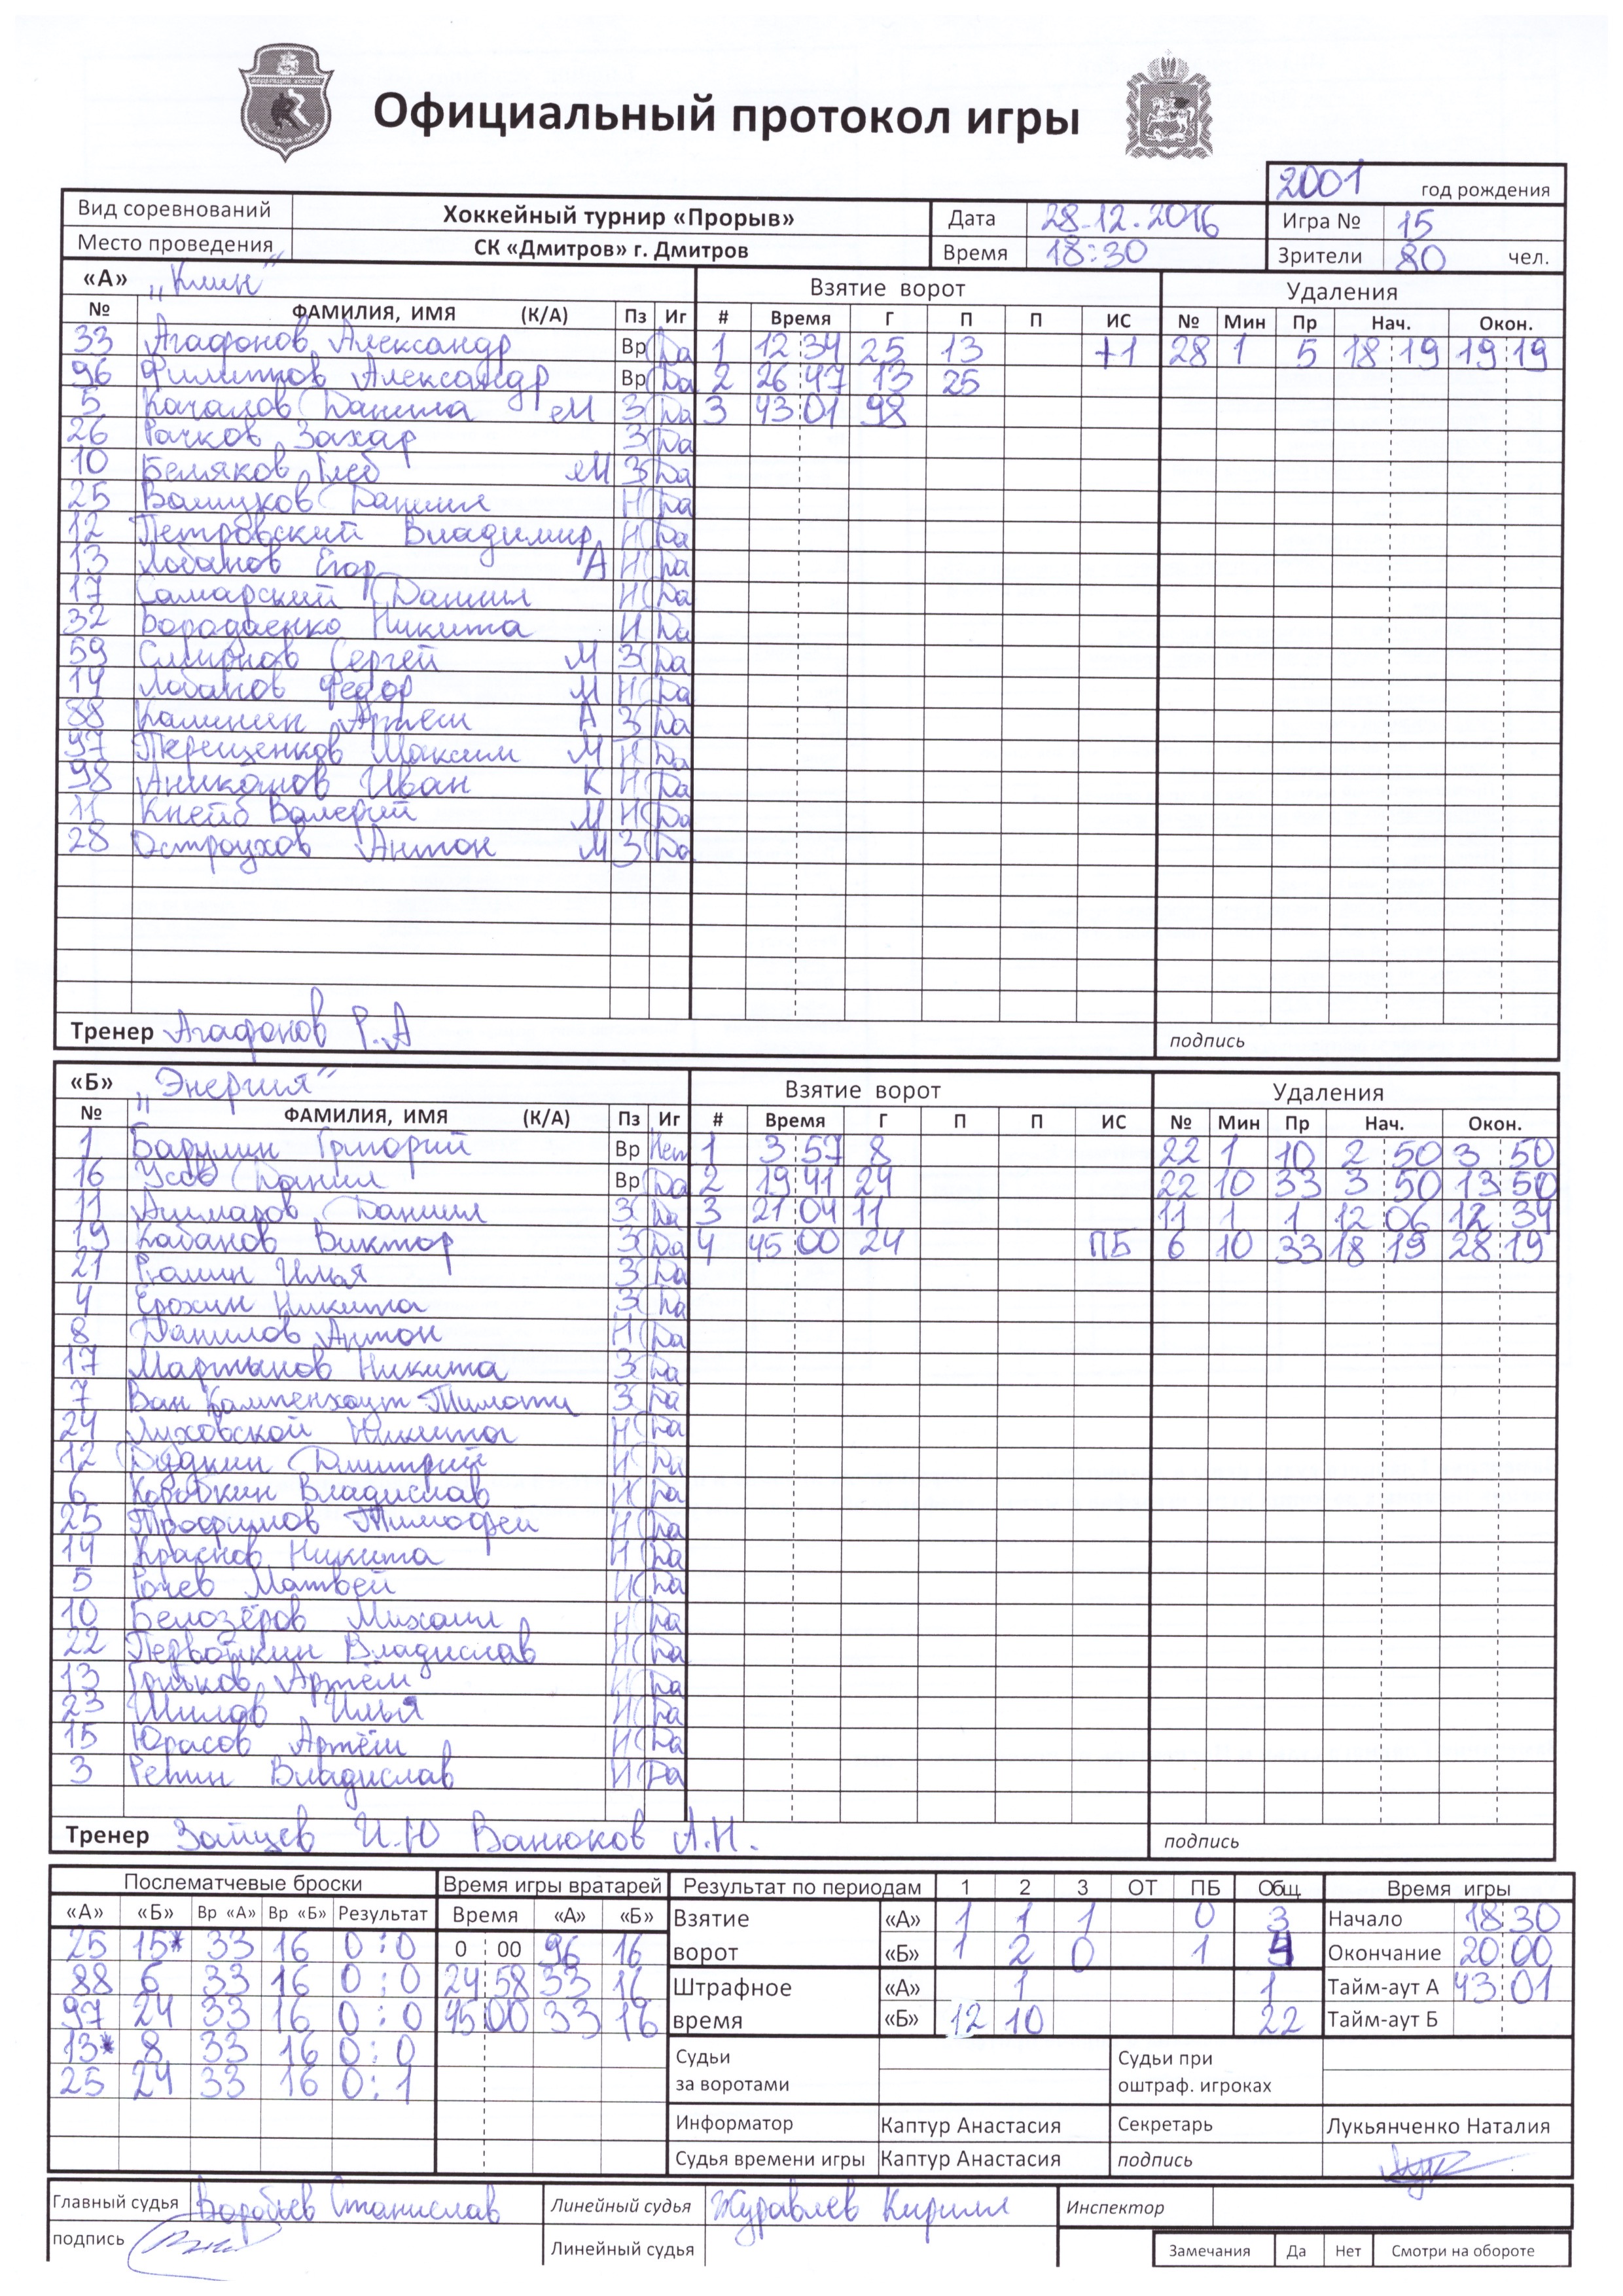 Официальный протокол игры
2001 год рождения
Вид соревнований Хоккейный турнир «Прорыв» Дата 28.12.2016 Игра № 15
Место проведения СК «Дмитров» г. Дмитров Время 18:30 Зрители 80 чел.
«А» „Клин“ Взятие ворот Удаления
№ ФАМИЛИЯ, ИМЯ (К/А) Пз Иг # Время Г П П ИС № Мин Пр Нач. Окон.
33 Агафонов Александр Вр Да 1 12 34 25 13 +1 28 1 5 18 19 19 19
96 Филиппов Александр Вр Да 2 26 47 13 25
5 Качалов Данила М З Да 3 43 01 98
26 Рачков Захар З Да
10 Беляков Глеб М З Да
25 Даниил Н Да
12 Петровский Владимир Н Да
13 Лобанов Егор А Н Да
17 Самарский Даниил Н Да
32 Бородаенко Никита Н Да
59 Смирнов Сергей М З Да
19 Лобанов Федор М Н Да
88 Калинин Артём А З Да
97 Терещенков Максим М Н Да
98 Аниканов Иван К Н Да
11 Кнейб Валерий М Н Да
28 Остроухов Антон М З Да
Тренер Агафонов Р.А подпись
«Б» „Энергия“ Взятие ворот Удаления
№ ФАМИЛИЯ, ИМЯ (К/А) Пз Иг # Время Г П П ИС № Мин Пр Нач. Окон.
1 Барулин Григорий Вр Нет 1 3 57 8 22 1 10 2 50 3 50
16 Усов Данил Вр Да 2 19 41 24 22 10 33 3 50 13 50
11 Даниил З Да 3 21 04 11 11 1 1 12 06 12 34
19 Кабанов Виктор З Да 4 45 00 24 ПБ 6 10 33 18 19 28 19
21 Илья З Да
4 Ерохин Никита З Да
8 Данилов Антон Н Да
17 Мартынов Никита З Да
7 Ван Кампенхаут Тимоти З Да
24 Лиховской Никита Н Да
12 Дудкин Дмитрий Н Да
6 Коробкин Владислав Н Да
25 Трофимов Тимофей Н Да
14 Краснов Никита Н Да
5 Рачев Матвей Н Да
10 Белозёров Михаил Н Да
22 Первойкин Владислав Н Да
13 Артём Н Да
23 Шилов Илья Н Да
15 Юрасов Артём Н Да
3 Репин Владислав Н Да
Тренер Зайцев И.Ю Ванюков А.Н. подпись
Послематчевые броски Время игры вратарей Результат по периодам 1 2 3 ОТ ПБ Общ. Время игры
«А» «Б» Вр «А» Вр «Б» Результат Время «А» «Б» Взятие «А» 1 1 1 0 3 Начало 18 30
25 15* 33 16 0 : 0 0 00 96 16 ворот «Б» 1 2 0 1 4 Окончание 20 00
88 6 33 16 0 : 0 24 58 33 16 Штрафное «А» 1 1 Тайм-аут А 43 01
97 24 33 16 0 : 0 45 00 33 16 время «Б» 12 10 22 Тайм-аут Б
13* 8 33 16 0 : 0 Судьи за воротами Судьи при оштраф. игроках
25 24 33 16 0 : 1
Информатор Каптур Анастасия Секретарь Лукьянченко Наталия
Судья времени игры Каптур Анастасия подпись
Главный судья Воробьев Станислав Линейный судья Журавлев Кирилл Инспектор
подпись Линейный судья Замечания Да Нет Смотри на обороте